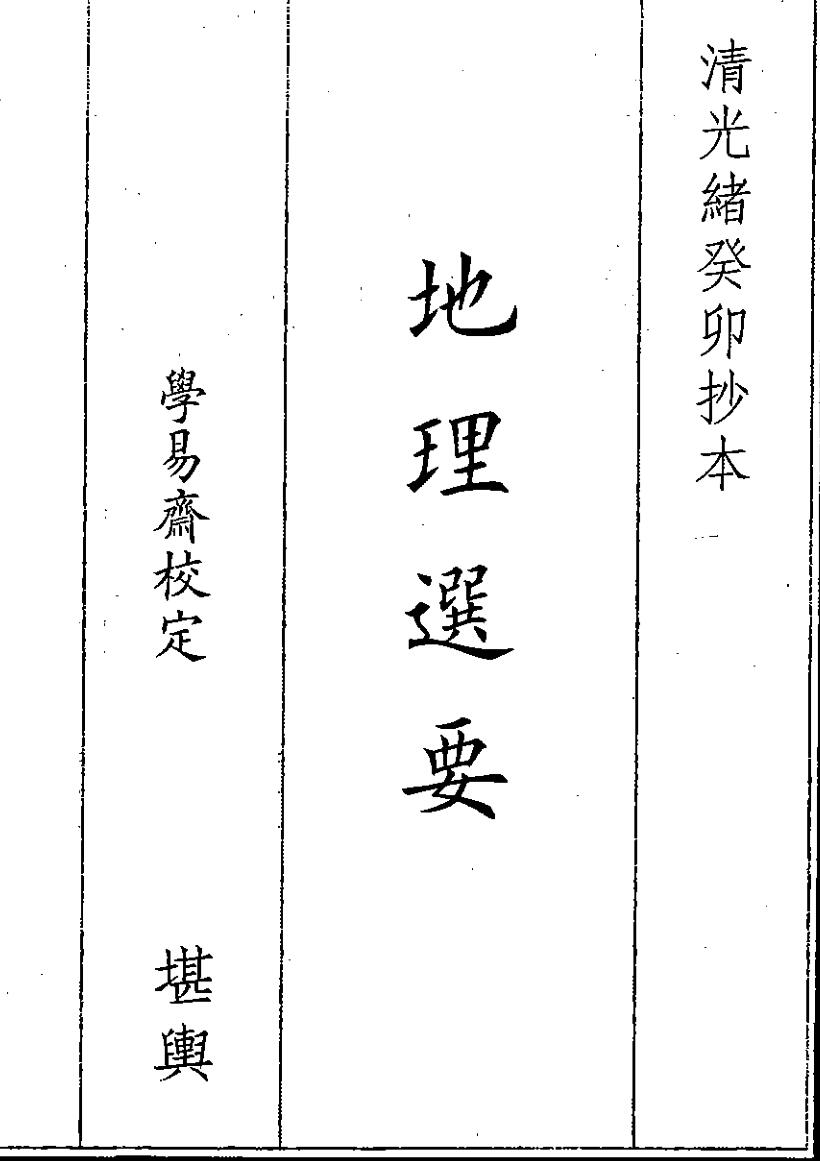 清光緒癸卯抄本
地理選要
學易齋校定
堪輿